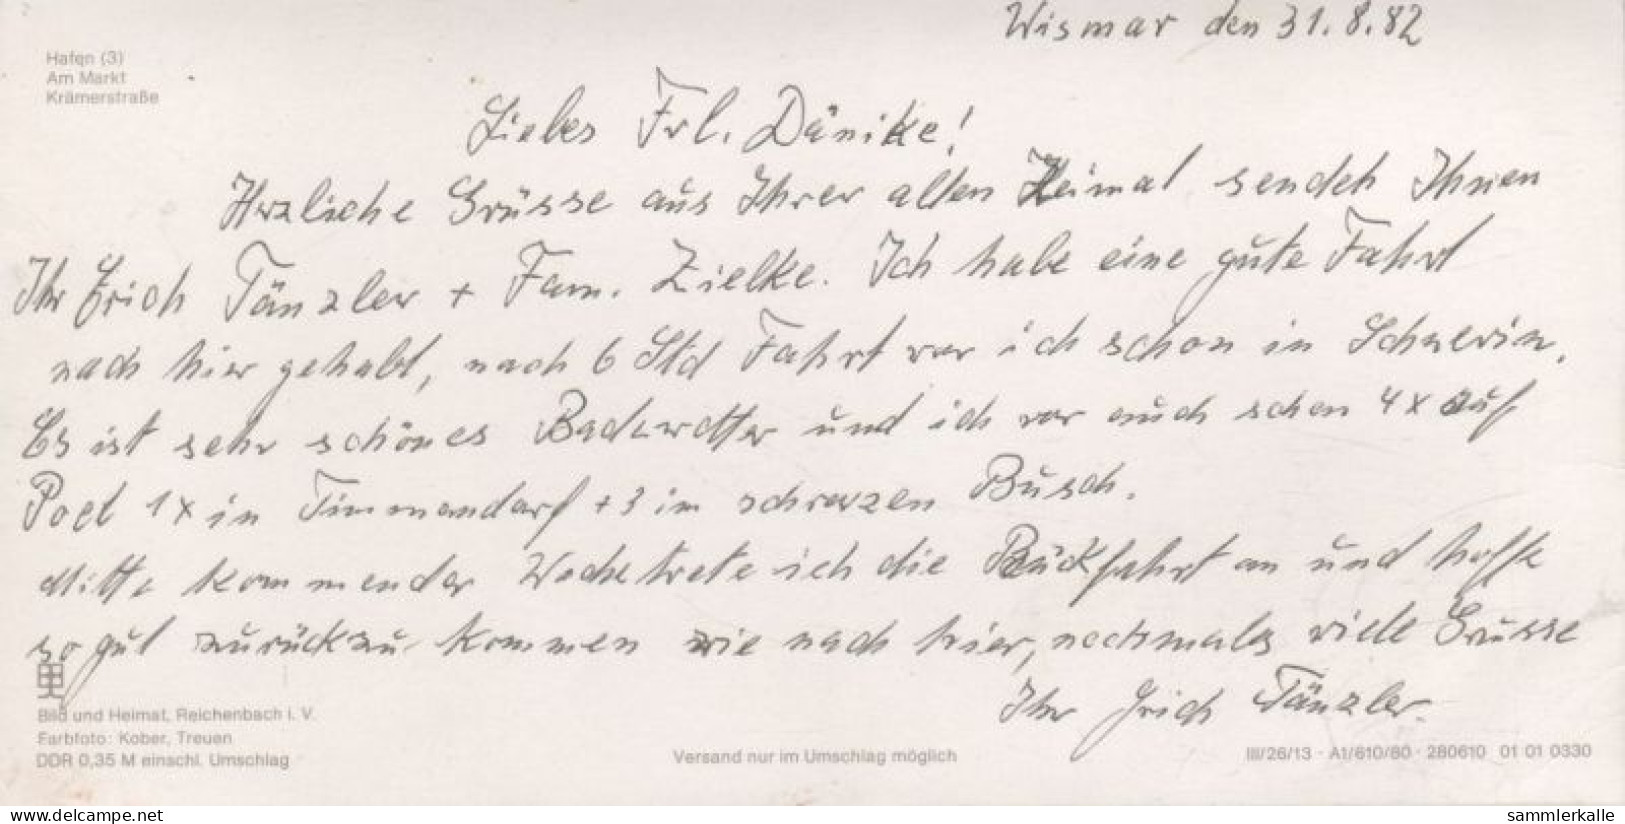 Wismar den 31.8.82
Hafen (3)
Am Markt
Krämerstraße
Liebes Frl. Dänike!
Herzliche Grüsse aus Ihrer alten Heimat sendet Ihnen
Ihr Erich Tänzler + Fam. Zielke. Ich habe eine gute Fahrt
nach hier gehabt, nach 6 Std Fahrt war ich schon in Schwerin.
Es ist sehr schönes Badewetter und ich war auch schon 4x auf
Poel 1x in Timmendorf + 3 im schwarzen Busch.
Mitte kommender Woche trete ich die Rückfahrt an und hoffe
so gut zurückzukommen wie nach hier, nochmals viele Grüsse
Ihr Erich Tänzler.
Bild und Heimat, Reichenbach i. V.
Farbfoto: Kober, Treuen
DDR 0,35 M einschl. Umschlag
Versand nur im Umschlag möglich
III/26/13 · A1/610/80 · 280610 01 01 0330
www.delcampe.net
sammlerkalle